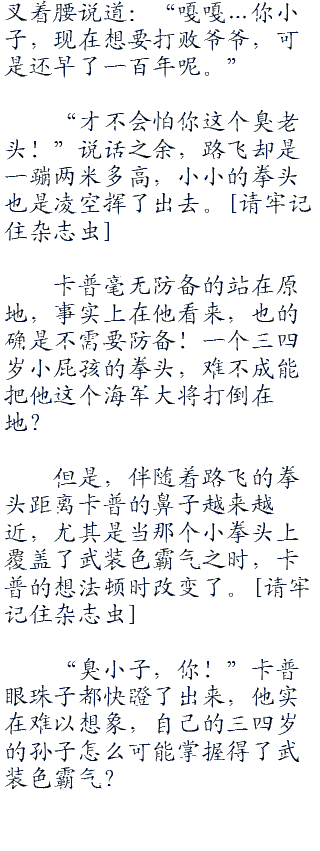 叉着腰说道：“嘎嘎…你小
子，现在想要打败爷爷，可
是还早了一百年呢。”
“才不会怕你这个臭老
头！”说话之余，路飞却是
一蹦两米多高，小小的拳头
也是凌空挥了出去。[请牢记
住杂志虫]
卡普毫无防备的站在原
地，事实上在他看来，也的
确是不需要防备！一个三四
岁小屁孩的拳头，难不成能
把他这个海军大将打倒在
地？
但是，伴随着路飞的拳
头距离卡普的鼻子越来越
近，尤其是当那个小拳头上
覆盖了武装色霸气之时，卡
普的想法顿时改变了。[请牢
记住杂志虫]
“臭小子，你！”卡普
眼珠子都快瞪了出来，他实
在难以想象，自己的三四岁
的孙子怎么可能掌握得了武
装色霸气？